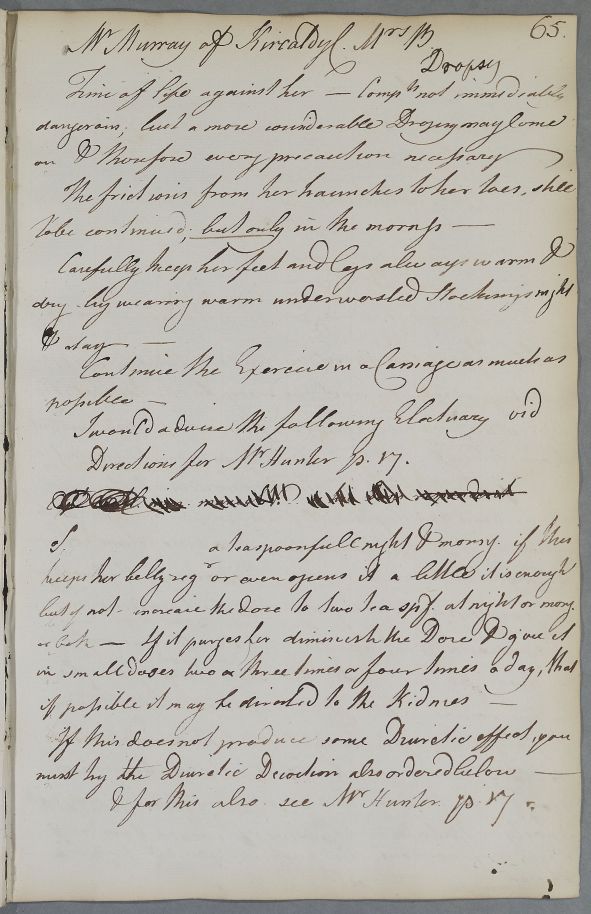 65.
Mr Murray of Kircaldy C. Mrs B
Dropsy
Time of life against her — Compts not immediately
dangerous, but a more considerable Dropsy may come
on & therefore every precaution necessary
The frictions from her haunches to her toes, still
to be continued, but only in the morngs —
Carefully keep her feet and legs always warm &
dry by wearing warm underworsted Stockings night
& day —
Continue the Exercise in a Carriage as much as
possible —
I would advise the following Electuary vid
Directions for Mr Hunter p. 17.
S a teaspoonfull night & morng. if this
keeps her belly regr or even opens it a little it is enough
but if not - increase the dose to two tea spf. at night or morng.
or both — If it purges her diminish the Dose & give it
in small doses two or three times or four times a day, that
if possible it may be directed to the Kidnes —
If this does not produce some Diuretic effect, you
must try the Diuretic Decoction also ordered below —
& for this also see Mr Hunter p. 17.